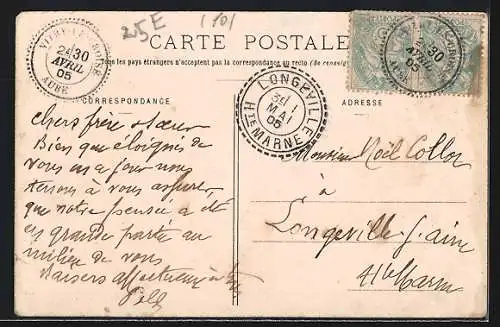 25E
(10)
VITRY-LE-CROISÉ
2E 30
AVRIL
05
AUBE
CARTE POSTALE
2E 30
AVRIL
05
AUBE
Tous les pays étrangers n'acceptent pas la correspondance au recto (se renseigner
CORRESPONDANCE
ADRESSE
LONGEVILLE
MAI
05
HTE MARNE
Chers frère et sœur
Bien que éloignés de
vous en ce jour nous
tenons à vous assurer
que notre pensée a été
en grande partie au
milieu de vous
Baisers affectueux à
Monsieur Noël Collot
à
Longeville s/ aine
Hte Marne